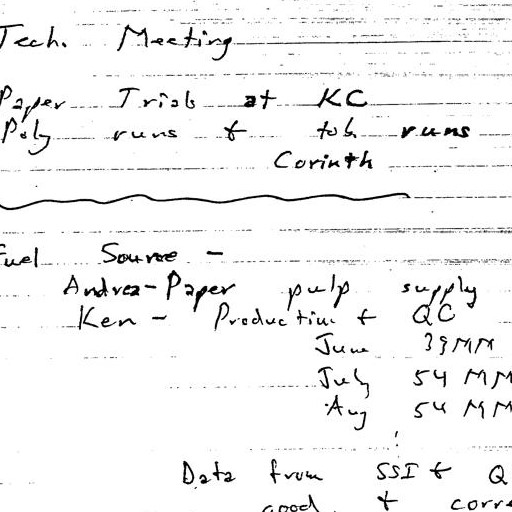 Tech. Meeting
Paper Trials at KC
Poly runs & tob runs
Corinth
Fuel Source -
Andrea - Paper pulp supply
Ken - Production & QC
June 39 MM
July 54 MM
Aug 54 MM
Data from SSI & Q
good &